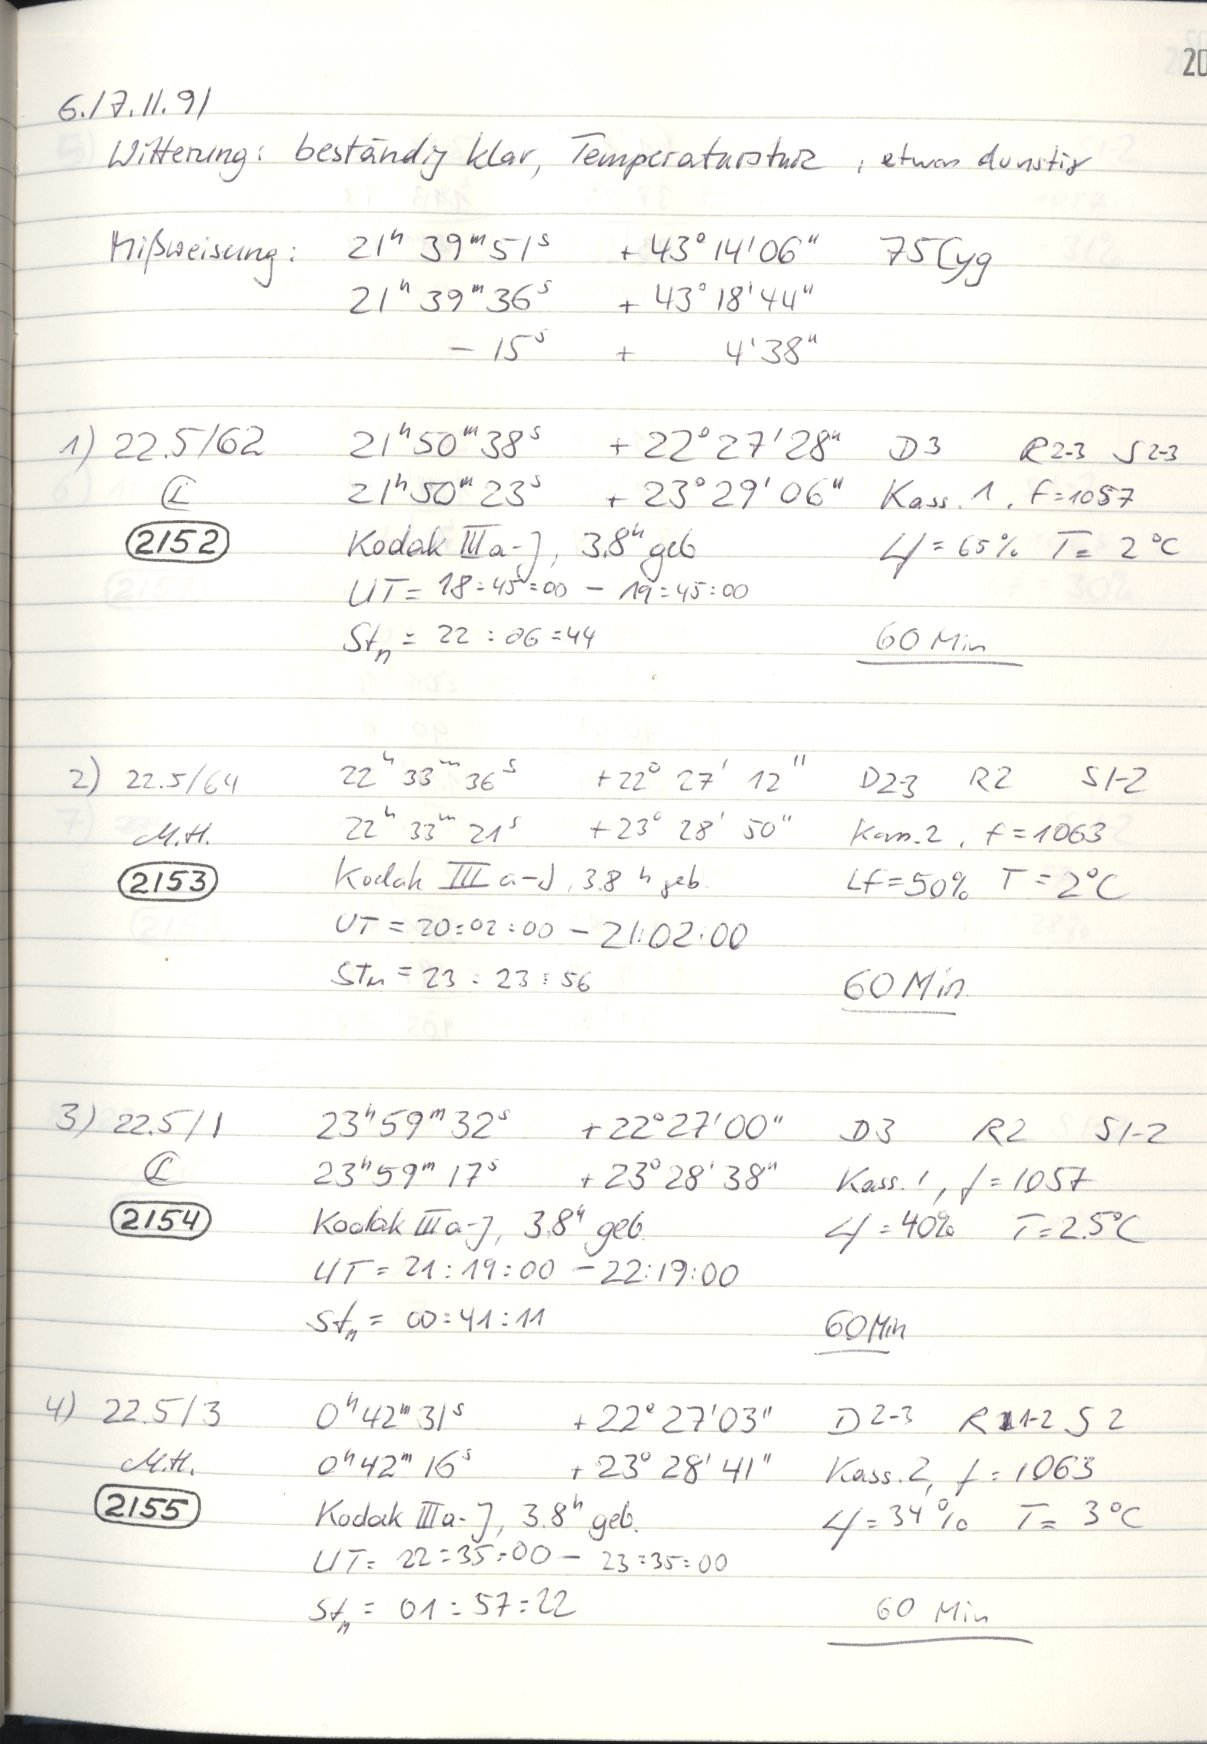 20
6./7.11.91
Witterung: beständig klar, Temperatursturz, etwas dunstig
Mißweisung: 21ʰ 39ᵐ 51ˢ +43° 14' 06" 75 Cyg
21ʰ 39ᵐ 36ˢ +43° 18' 44"
- 15ˢ + 4' 38"
1) 22.5/62 21ʰ 50ᵐ 38ˢ +22° 27' 28" D3 R2-3 S2-3
21ʰ 50ᵐ 23ˢ +23° 29' 06" Kass. 1, f=1057
2152 Kodak IIIa-J, 3.8ʰ geb Lf=65% T= 2°C
UT= 18:45:00 - 19:45:00
Stₙ = 22:06:44 60 Min
2) 22.5/64 22ʰ 33ᵐ 36ˢ +22° 27' 12" D2-3 R2 S1-2
M.H. 22ʰ 33ᵐ 21ˢ +23° 28' 50" Kass.2, f=1063
2153 Kodak IIIa-J, 3.8ʰ geb. Lf=50% T=2°C
UT=20:02:00 - 21:02:00
Stₙ=23:23:56 60 Min
3) 22.5/1 23ʰ 59ᵐ 32ˢ +22° 27' 00" D3 R2 S1-2
23ʰ 59ᵐ 17ˢ +23° 28' 38" Kass. 1, f=1057
2154 Kodak IIIa-J, 3.8ʰ geb. Lf=40% T=2.5°C
UT= 21:19:00 - 22:19:00
Stₙ = 00:41:11 60 Min
4) 22.5/3 0ʰ 42ᵐ 31ˢ +22° 27' 03" D2-3 R1-2 S2
M.H. 0ʰ 42ᵐ 16ˢ +23° 28' 41" Kass.2, f=1063
2155 Kodak IIIa-J, 3.8ʰ geb. Lf=34% T= 3°C
UT= 22:35:00 - 23:35:00
Stₙ = 01:57:22 60 Min